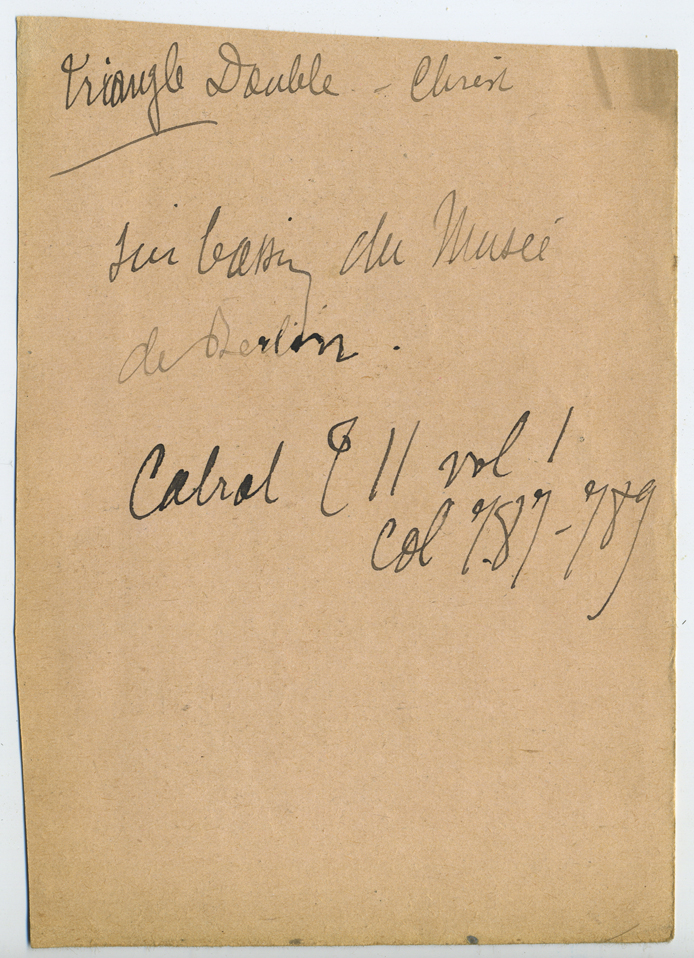 Triangle Double - Christ
sur bassin du Musée
de Berlin.
Cabrol T II vol 1
col 787-789